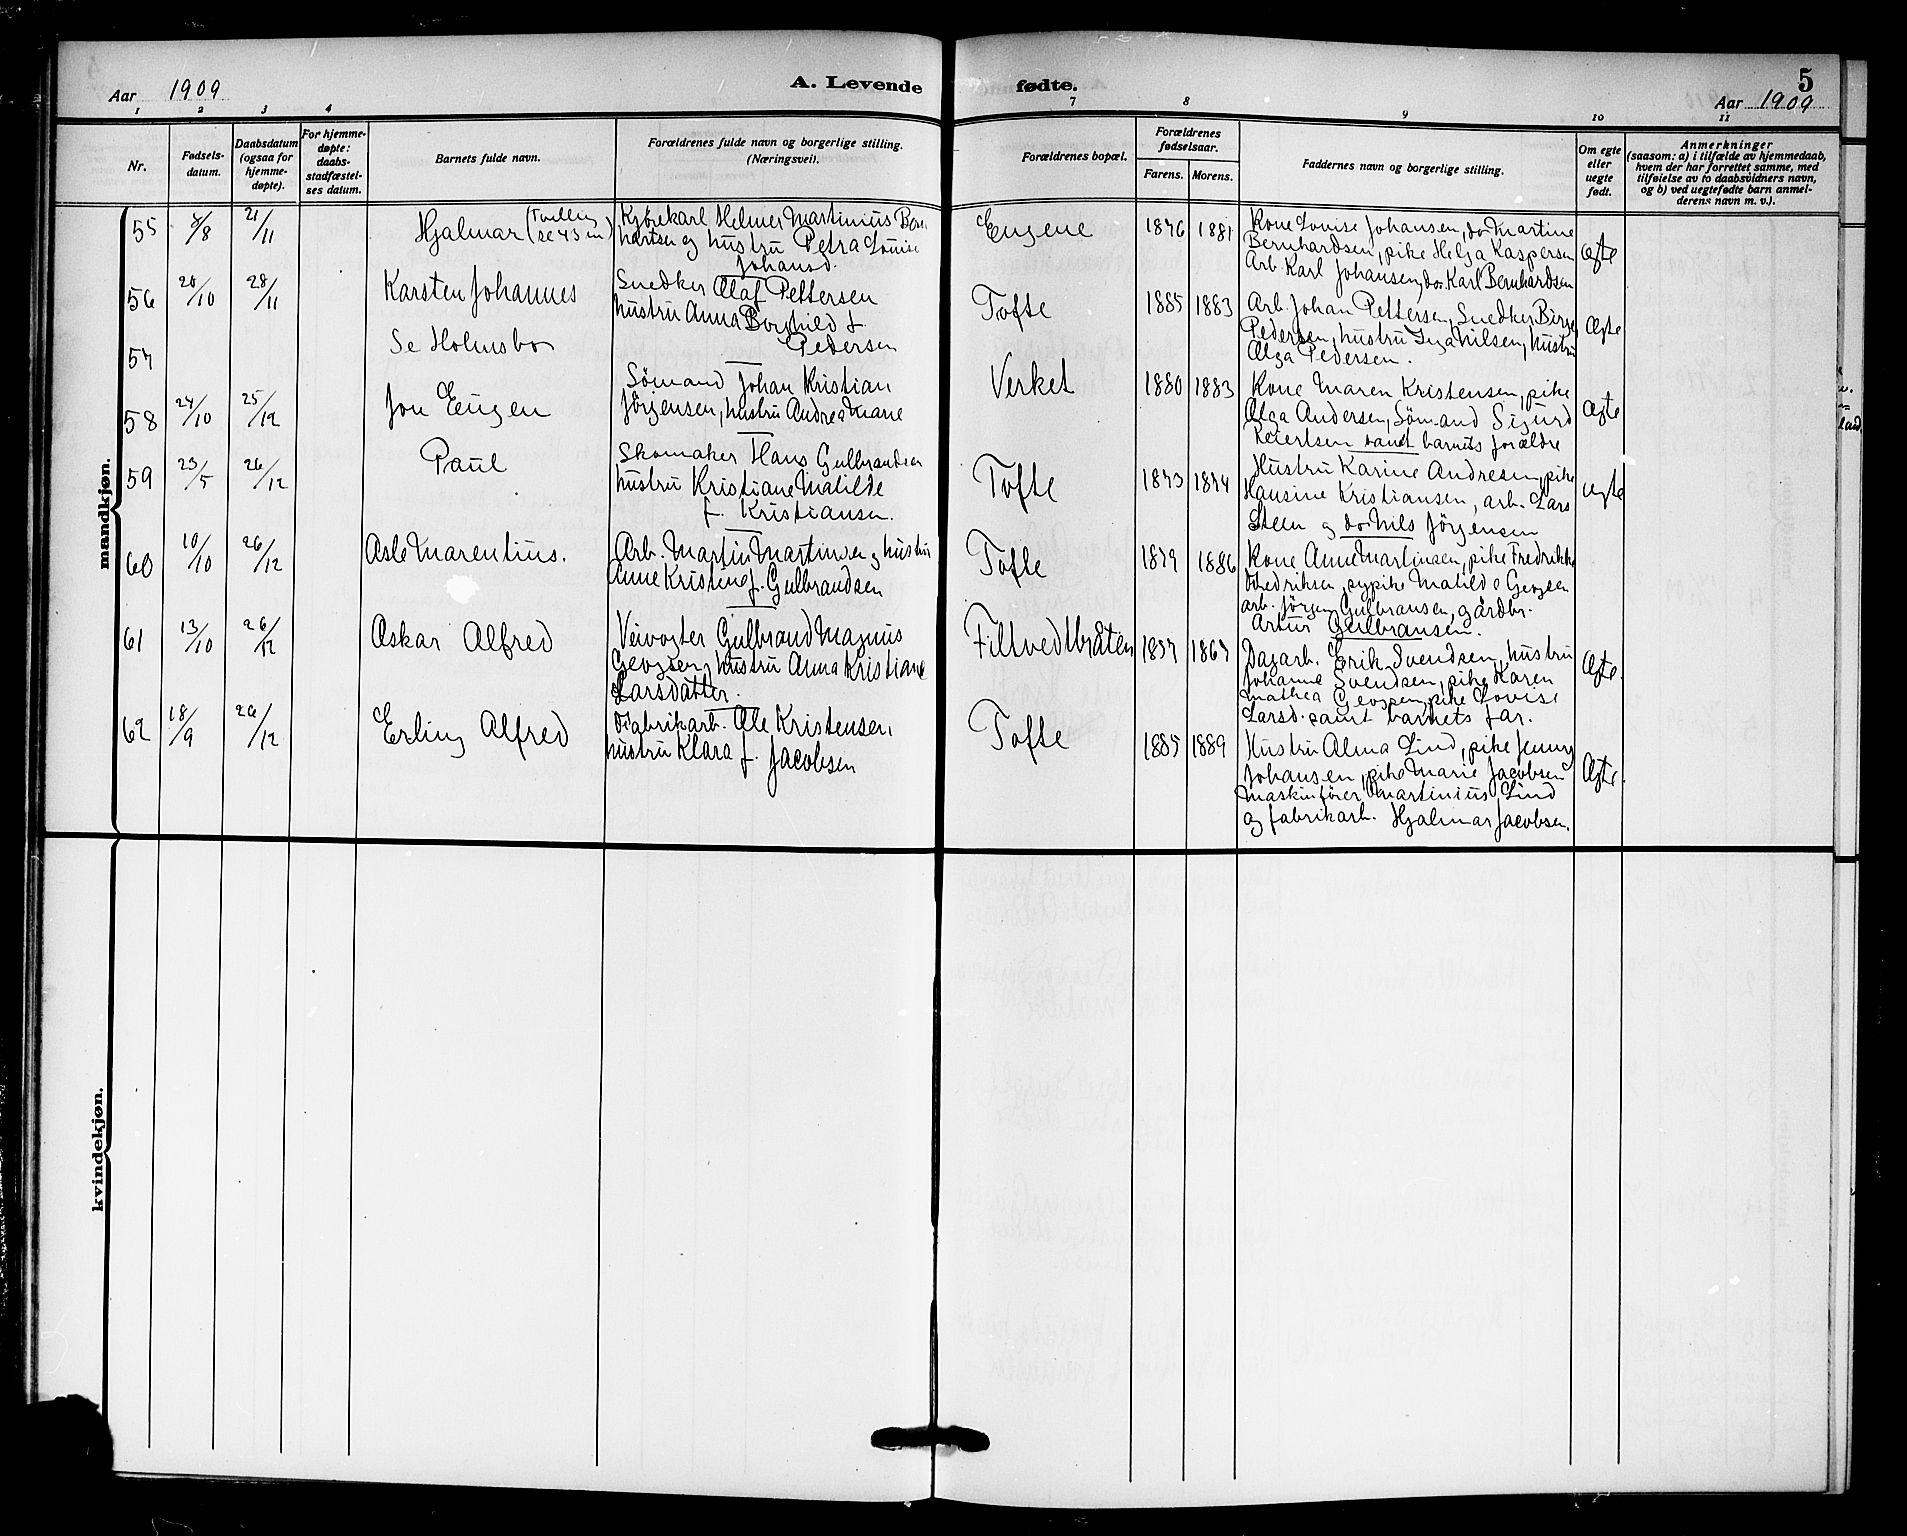 A. Levende
fødte.
5
Aar 1909
Aar 1909
1 2 3 4 7 8 9 10 11
Nr.
Fødsels-
datum.
Daabsdatum
(ogsaa for
hjemme-
døpte).
For hjemme-
døpte:
daabs-
stadfæstel-
ses datum.
Barnets fulde navn.
Forældrenes fulde navn og borgerlige stilling.
(Næringsvei).
Forældrenes bopæl.
Forældrenes
fødselsaar.
Farens. Morens.
Faddernes navn og borgerlige stilling.
Om egte
eller
uegte
født.
Anmerkninger
(saasom: a) i tilfælde av hjemmedaab,
hvem der har forrettet samme, med
tilføielse av to daabsvidners navn,
og b) ved uegtefødte barn anmel-
derens navn m. v.).
mandkjøn.
55 8/8 21/11 Hjalmar (Tvilling
se 43 )
Helmer Martinius Bern
hartsen og hustru Petra Louise
Johansd.
Eugene 1876 1881
Kone Louise Johansen, do Martine
Bernhardsen, pike Helga Kaspersen
Arb. Karl Johansen, do. Karl Bernhardsen
ægte
56 20/10 28/11 Karsten Johannes
Snedker Olaf Pettersen
hustru Anna Borghild f.
Pedersen
Tofte 1885 1883
Arb. Johan Pettersen, Snedker Birger
Pedersen, hustru Inga Nilsen, hustru
Olga Pedersen.
Ægte
57 Se Holmsbo
58 24/10 25/12 Jon Eugen
Sömand Johan Kristian
Jörgensen, hustru Andrea Marie
Verket 1880 1883
Kone Maren Kristensen, pike
Olga Andersen, Sömand Sigurd
Reiertsen samt barnets forældre
Ægte
59 23/5 26/12 Paul
Skomaker Hans Gulbrandsen
hustru Kristiane Matilde
f. Kristiansen.
Tofte 1873 1874
Hustru Karine Andresen, pike
Hansine Kristiansen, arb. Lars
Steen og do Nils Jörgensen
ægte
60 10/10 26/12 Asle Marentius.
Arb. Martin Martinsen og hustru
Anne Kristine f. Gulbrandsen
Tofte 1879 1886
Kone Anne Martinsen, pike Fredrikke
Fredriksen, sypike Matilde Georgsen
arb. Jörgen Gulbransen, gårdbr.
Artur Gulbransen.
61 13/10 26/12 Oskar Alfred
Veivogter Gulbrand Magnus
Georgsen, hustru Anna Kristiane
Larsdatter.
Filtvedtbråten 1857 1867
Dagarb. Erik Svendsen, hustru
Johanne Svendsen, pike Karen
Mathea Georgsen, pike Lovise
Larsd. samt barnets far.
Ægte.
62 18/9 26/12 Erling Alfred
Fabrikarb. Ole Kristensen,
hustru Klara f. Jacobsen
Tofte 1885 1889
Hustru Alma Lind, pike Jenny
Johansen, pike Marie Jacobsen
Maskinfører Martinius Lind
og fabrikarb. Hjalmar Jacobsen.
Ægte.
kvindekjøn.